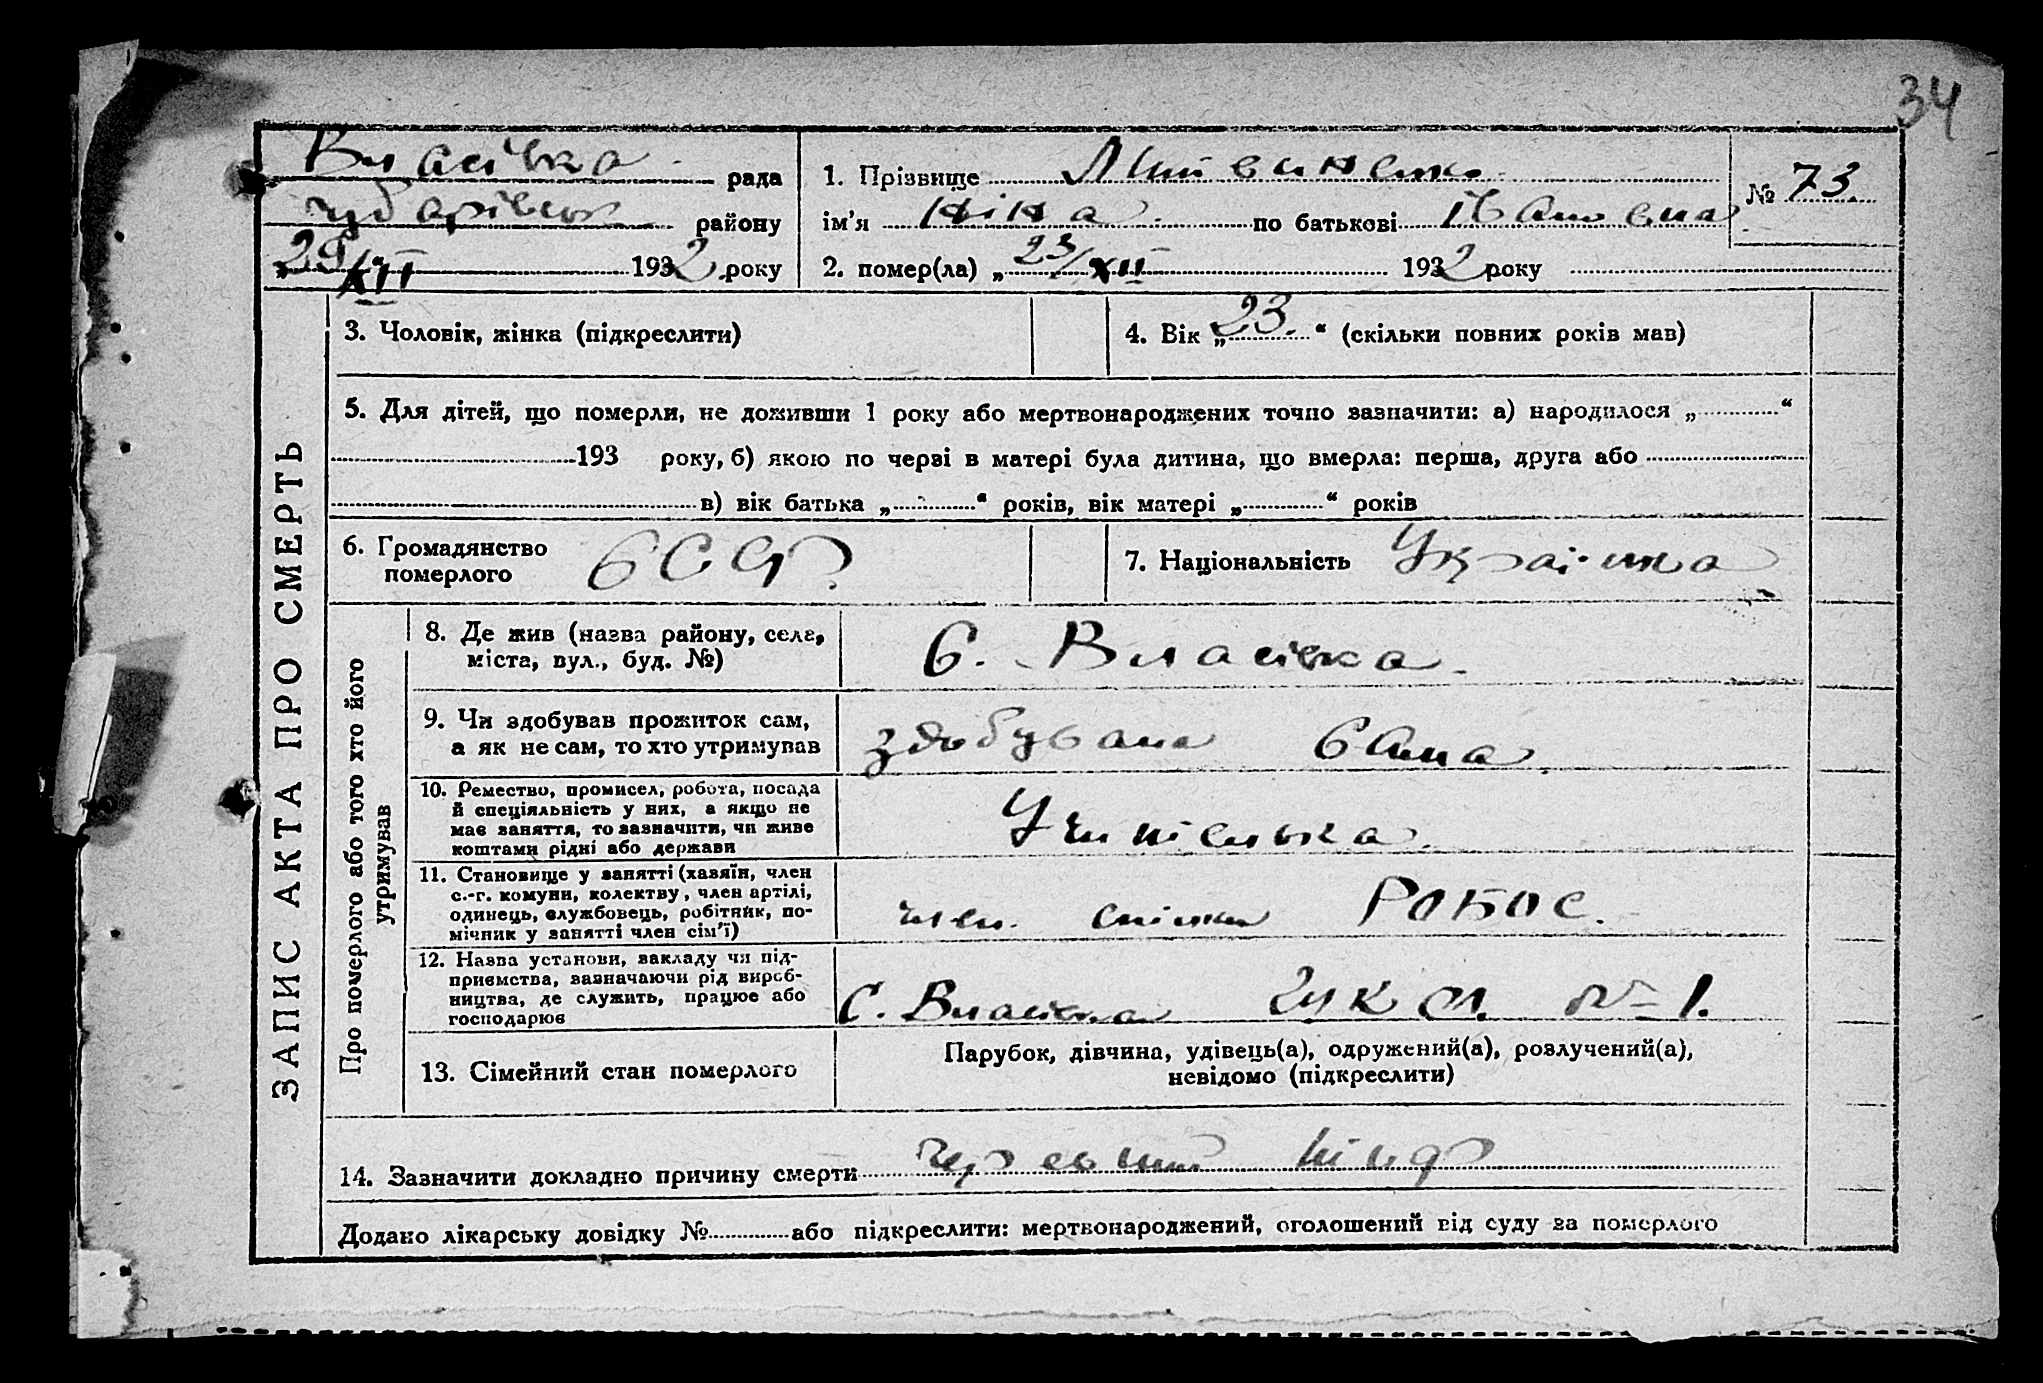 34
Власівка рада
Чубарівськ району
25/XII 1932 року
1. Прізвище Литвиненко
ім’я Ніна по батькові Івановна
2. помер(ла) „ 23/XII 1932 року
№ 73.
ЗАПИС АКТА ПРО СМЕРТЬ
3. Чоловік, жінка (підкреслити)
4. Вік „ 23. “ (скільки повних років мав)
5. Для дітей, що померли, не доживши 1 року або мертвонароджених точно зазначити: а) народилося „ “
193 року, б) якою по черзі в матері була дитина, що вмерла: перша, друга або
в) вік батька „ “ років, вік матері „ “ років
6. Громадянство
померлого ССР
7. Національність Українка
Про померлого або того хто його
утримував
8. Де жив (назва району, села,
міста, вул., буд. №)
С. Власівка
9. Чи здобував прожиток сам,
а як не сам, то хто утримував
здобувала сама
10. Ремество, промисел, робота, посада
й спеціяльність у них, а якщо не
має заняття, то зазначити, чи живе
коштами рідні або держави
Учителька.
11. Становище у занятті (хазяїн, член
с.-г. комуни, колектву, член артілі,
одинець, службовець, робітник, по-
мічник у занятті член сім’ї)
член спілки РОБОС.
12. Назва установи, закладу чи під-
приємства, зазначаючи рід вироб-
ництва, де служить, працює або
господарює
С. Власівка школ. № 1.
13. Сімейний стан померлого
Парубок, дівчина, удівець(а), одружений(а), розлучений(а),
невідомо (підкреслити)
14. Зазначити докладно причину смерти
Додано лікарську довідку № або підкреслити: мертвонароджений, оголошений від суду за померлого